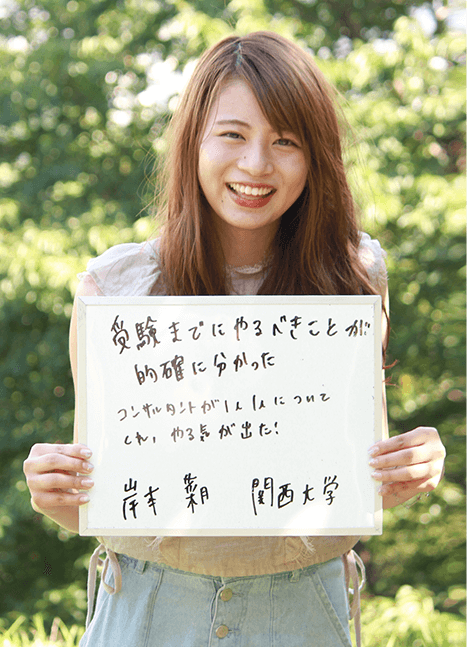 受験までにやるべきことが
的確に分かった
コンサルタントが1人1人について
くれ、やる気が出た!
岸本 関西大学